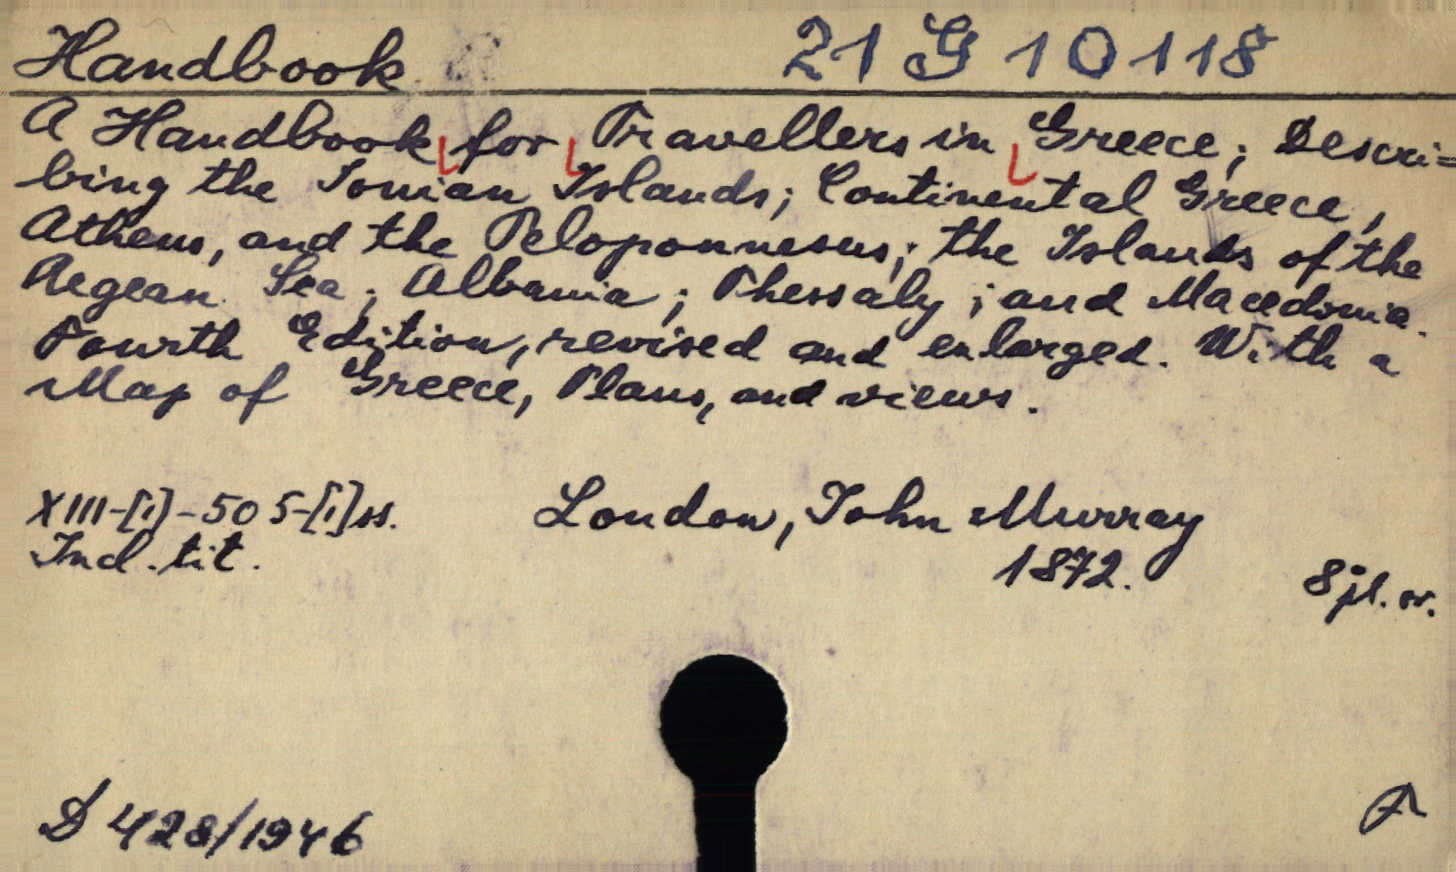 Handbook
21 G 10118
A Handbook for Travellers in Greece; Descri=
bing the Ionian Islands; Continental Greece,
Athens, and the Peloponnesus; the Islands of the
Aegean Sea; Albania; Thessaly; and Macedonia.
Fourth Edition, revised and enlarged. With a
Map of Greece, Plans, and views.
XIII-[1]-505-[1]ss.
London, John Murray
Ind. tit.
1872.
D 428/1946